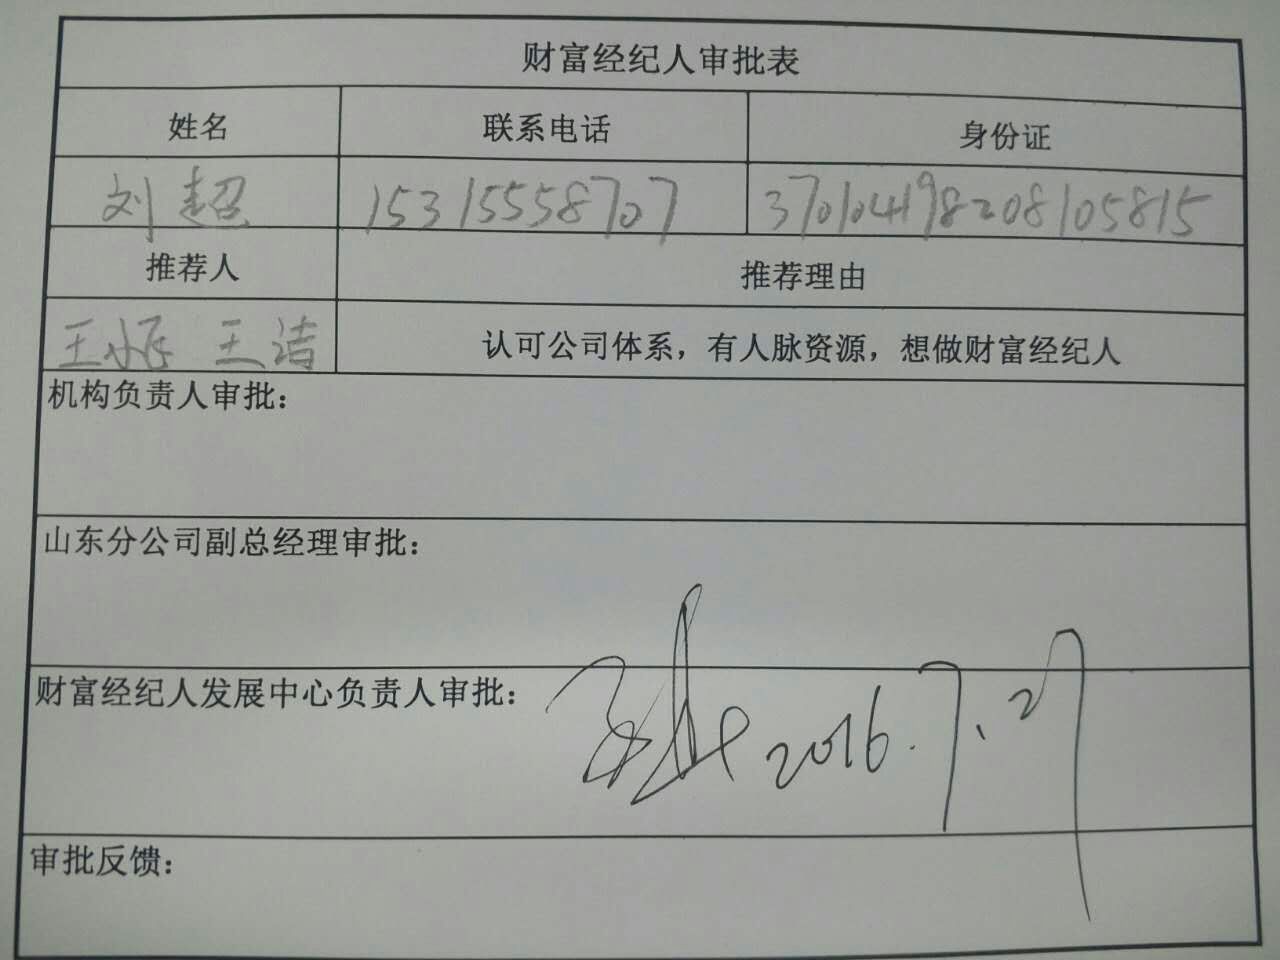 财富经纪人审批表
姓名 联系电话 身份证
刘超 15315558707 370104198208105815
推荐人 推荐理由
王 王洁 认可公司体系，有人脉资源，想做财富经纪人
机构负责人审批：
山东分公司副总经理审批：
财富经纪人发展中心负责人审批： 2016.7.27
审批反馈：